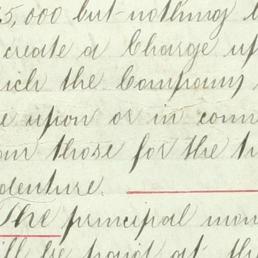 5,000 but nothing
create a Charge up
ich the Company
e upon or in conn
an those for the
denture.
The principal mon
ill be paid at the